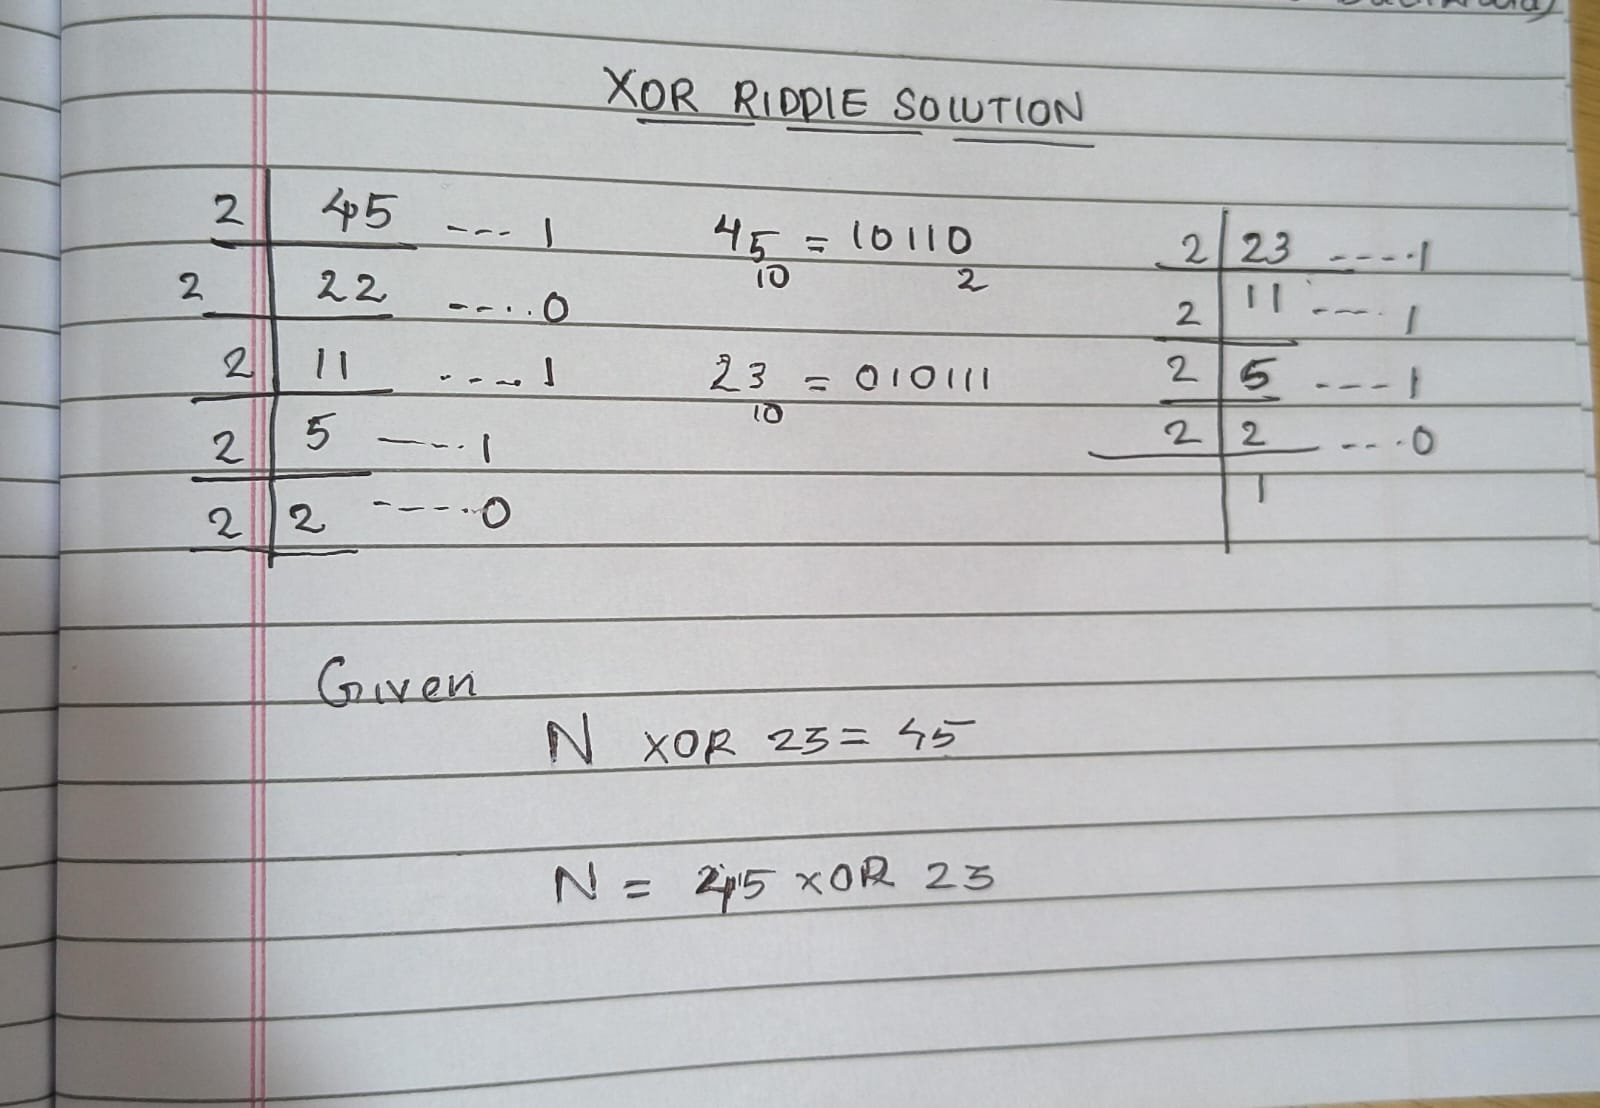 XOR RIDDLE SOLUTION
2 45 ---- 1
2 22 ----- 0
2 11 ----- 1
2 5 ----- 1
2 2 ------ 0
45₁₀ = 10110₂
23₁₀ = 010111
2 23 ----- 1
2 11 ----- 1
2 5 ---- 1
2 2 ---- 0
1
Given
N XOR 23 = 45
N = 45 XOR 23